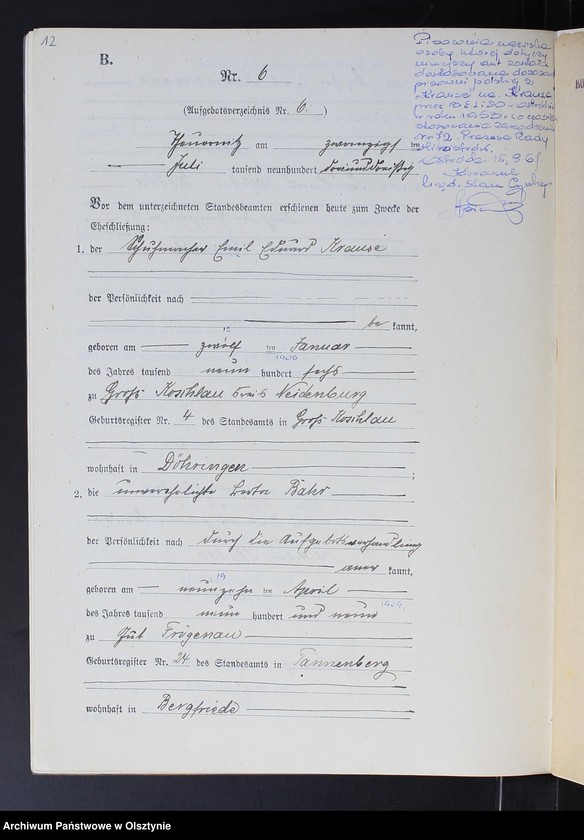 12
B.
Nr. 6
(Aufgebotsverzeichnis Nr. 6.)
Theuernitz am zwanzigsten
Juli tausend neunhundert dreiunddreißig
Vor dem unterzeichneten Standesbeamten erschienen heute zum Zwecke der
Eheschließung:
1. der Schuhmacher Emil Eduard Krause
der Persönlichkeit nach
be kannt,
12
geboren am zwölf ten Januar
1906
des Jahres tausend neun hundert sechs
zu Groß Koschlau Kreis Neidenburg
Geburtsregister Nr. 4 des Standesamts in Groß Koschlau
wohnhaft in Döhringen ;
2. die unverehelichte Berta Bähr
der Persönlichkeit nach durch die Aufgebotsverhandlung
aner kannt,
19
geboren am neunzehn ten April
1909
des Jahres tausend neun hundert und neun
zu Gut Frögenau
Geburtsregister Nr. 24 des Standesamts in Tannenberg
wohnhaft in Bergfriede
Pisownia nazwiska
osoby, której dotyczy
niniejszy akt została
dostosowana do zasad
pisowni polskiej z
"Krause" na "Krauze"
przez
w roku 1950
Nr 72 Prezesa Rady
Ministrów.
Ostróda
Kierownik
Urzęd. Stanu Cywilnego
Archiwum Państwowe w Olsztynie